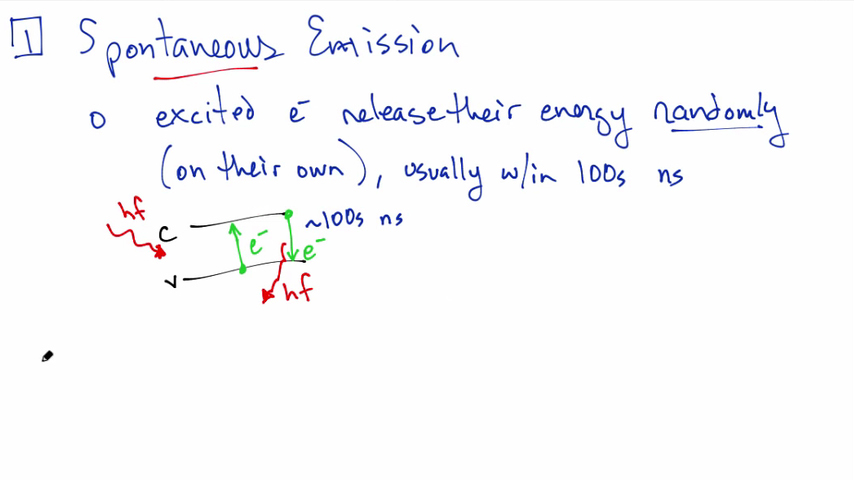 1 Spontaneous Emission
o excited e⁻ release their energy randomly
(on their own), usually w/in 100s ns
hf
C
~100s ns
e⁻
e⁻
V
hf